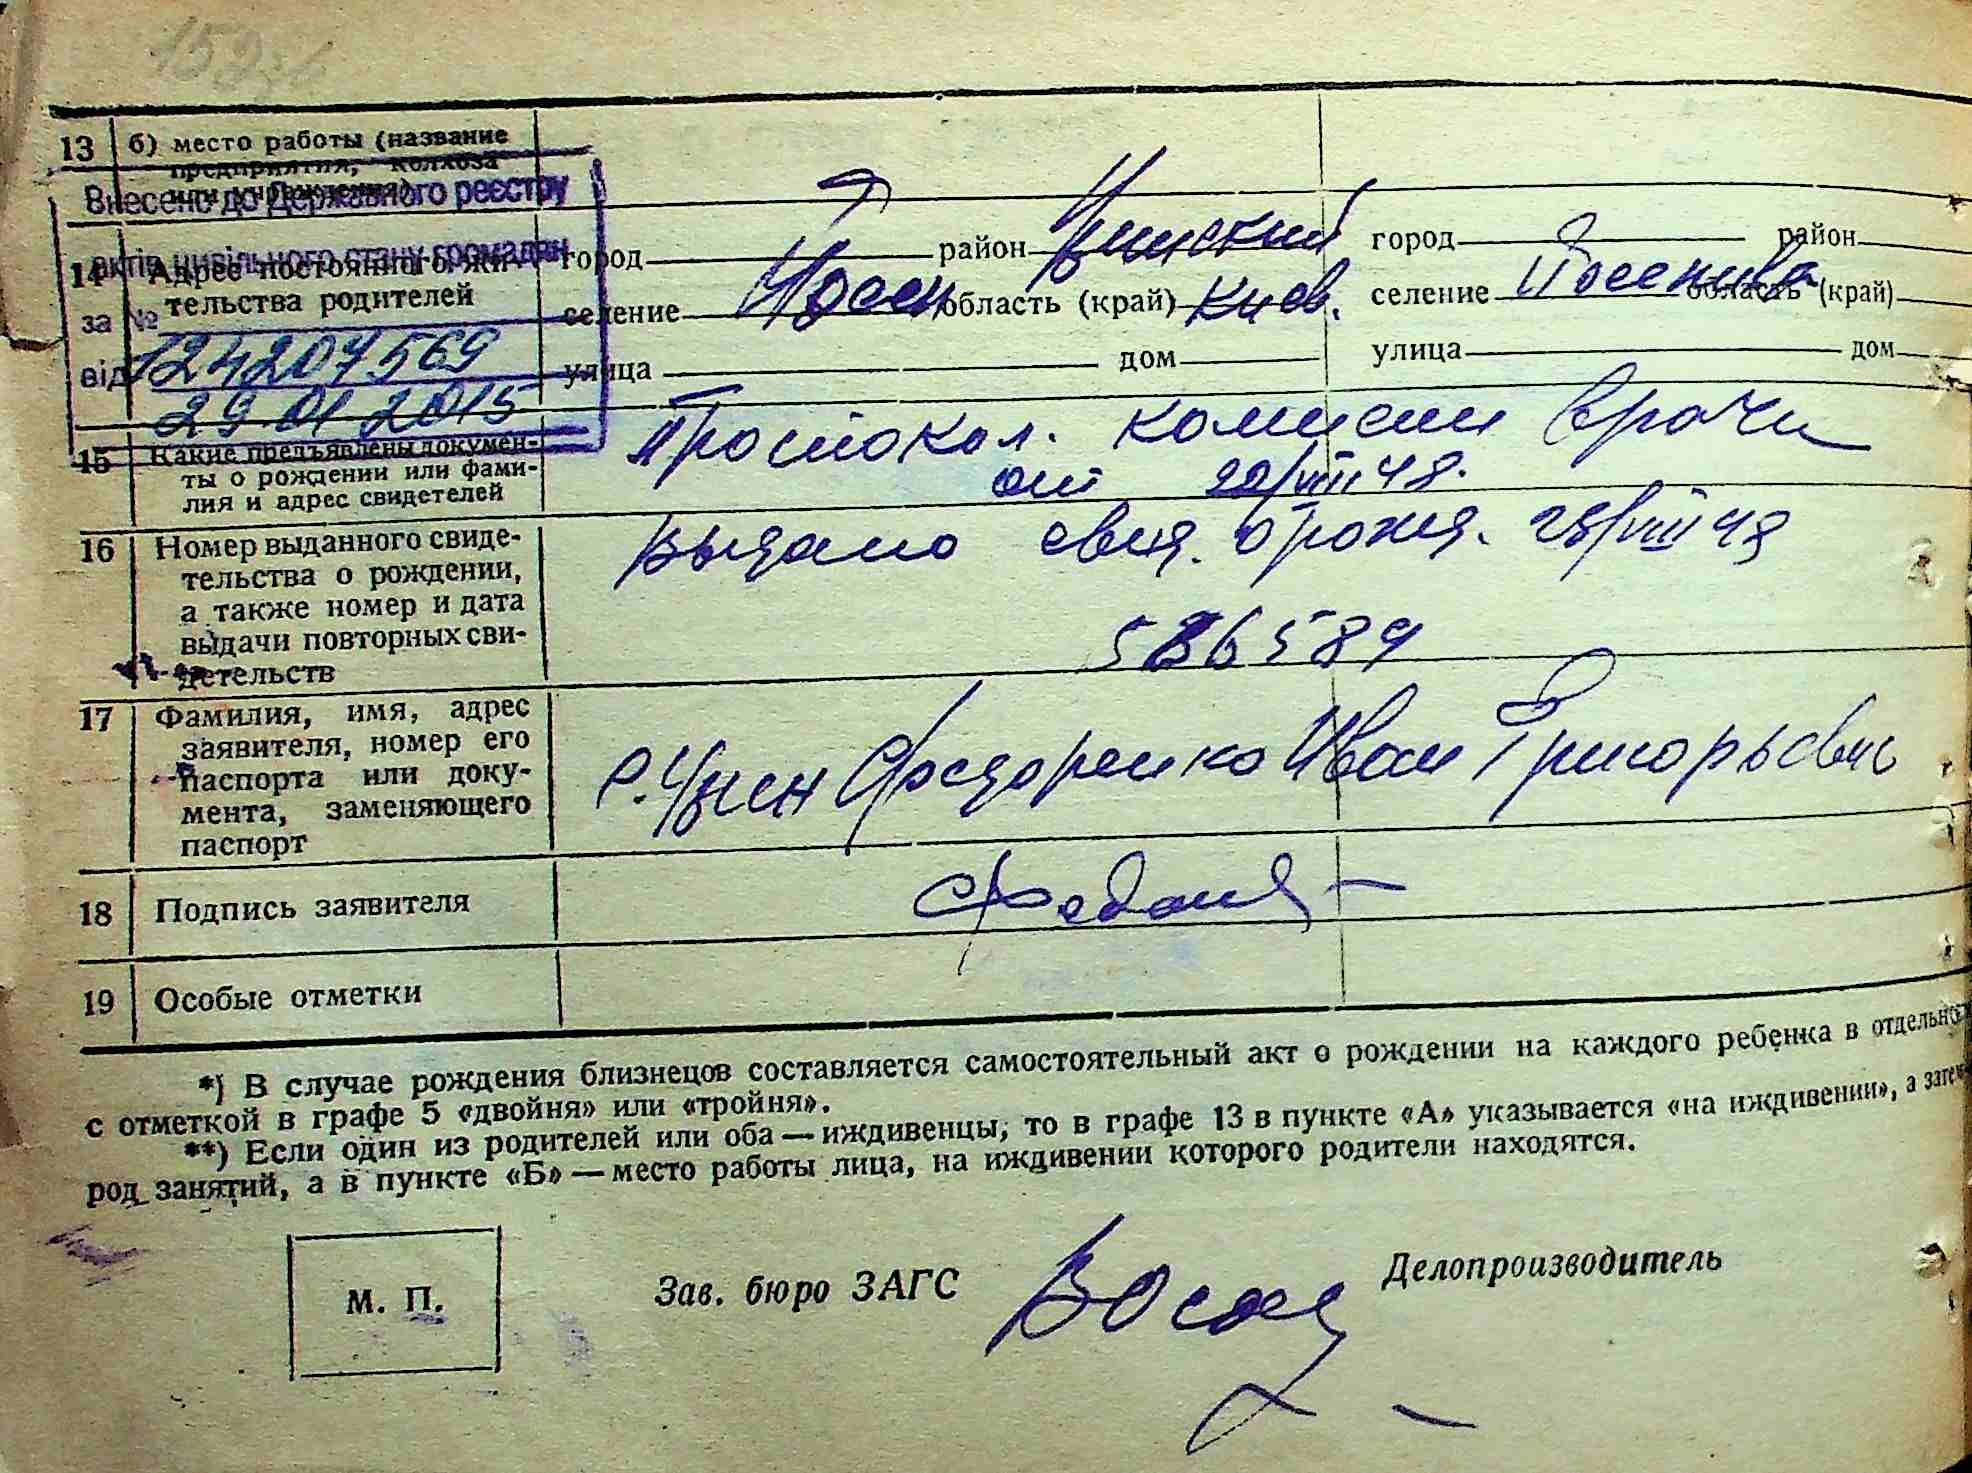 13 б) место работы (название
предприятия, колхоза
или учреждения)
Внесено до Державного реєстру
актів цивільного стану громадян
за № 124207569
від 29 01 2015
14 Адрес постоянного жи-
тельства родителей
город район город район
селение область (край) Киев. селение область (край)
улица дом улица дом
15 Какие предъявлены докумен-
ты о рождении или фами-
лия и адрес свидетелей
Протокол. комисии врачи
от 20/VIII 48.
16 Номер выданного свиде-
тельства о рождении,
а также номер и дата
выдачи повторных сви-
детельств
Выдано свид. о рожд. 28/VIII 48
586589
17 Фамилия, имя, адрес
заявителя, номер его
паспорта или доку-
мента, заменяющего
паспорт
Иван Григорьевич
18 Подпись заявителя
19 Особые отметки
*) В случае рождения близнецов составляется самостоятельный акт о рождении на каждого ребенка в
с отметкой в графе 5 «двойня» или «тройня».
**) Если один из родителей или оба — иждивенцы, то в графе 13 в пункте «А» указывается «на иждивении», а
род занятий, а в пункте «Б» — место работы лица, на иждивении которого родители находятся.
М. П.
Зав. бюро ЗАГС
Делопроизводитель